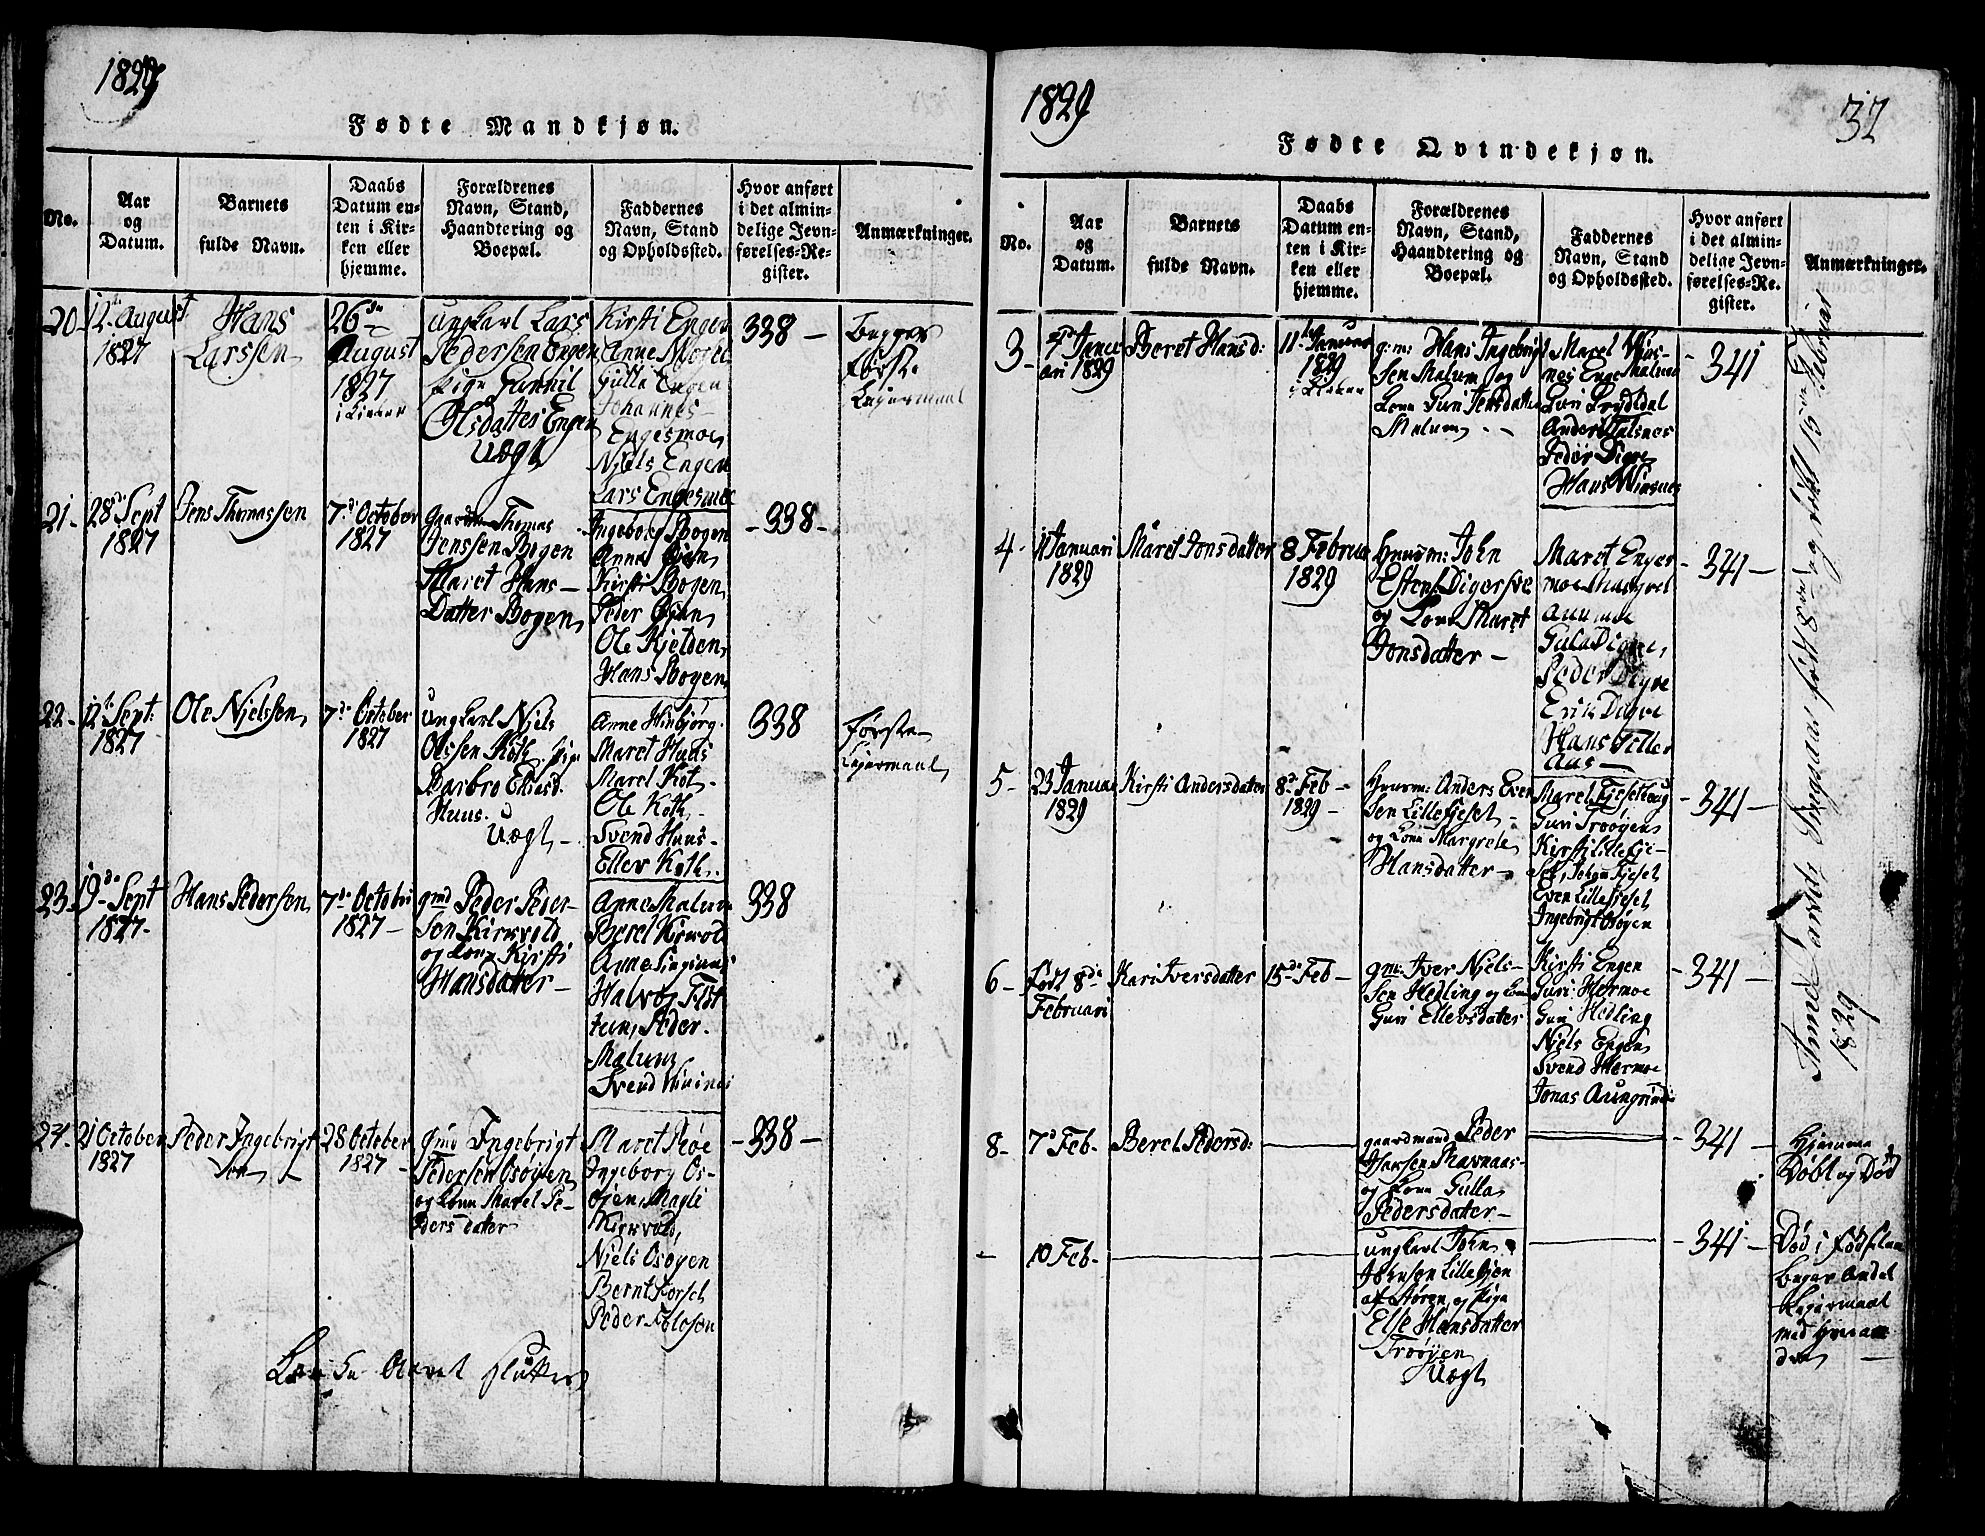 1829
Fødte Mandkjøn.
No.
Aar
og
Datum.
Barnets
fulde Navn.
Daabs
Datum en-
ten i Kir-
ken eller
hjemme.
Forældrenes
Navn, Stand,
Haandtering og
Boepæl.
Faddernes
Navn, Stand
og Opholdssted.
Hvor anført
i det almin-
delige Jevn-
førelses-Re-
gister.
Anmærkninger.
20
12te August
1827
Hans
Larssen
26de
August
1827
i Kirken
ungkarl Lars
Pedersen Engen
Pige Gunnil
Olsdatter Engen
Uægt
Kirsti Engen
Anne
Gulla Engen
Johannes
Engesmoe
Njels Engen
Lars Engesmoe
338 —
Begges
første
Leiermaal
21
28de Sept
1827
Jens Thomassen
7de October
1827
gaardm Thomas
Jenssen Bogen
Maret Hans-
Datter Bogen
Ingeborg Bogen
Anne Øien
Kirsti Bogen
Peder Øien
Ole Kjelden
Hans Bogen
- 338 -
22
12te Sept:
1827
Ole Njelssen
7de October
1827
ungkarl Njels
Olssen Kotk, Pige
Barbro
Huus.
Uægt —
Anne
Maret Huus
Maret Kot
Ole Kotk
Svend Huus
Ellev Kotk
338
første
Leiermaal
23
19de Sept
1827
Hans Pedersen
7de October
1827 —
gmd Peder Peder-
sen Kirkvold
og Kone Kirsti
Hansdatter —
Anne Malum
Beret Kirkvold
Anne
Halvor
Peder
Malum
Svend
338
24
21 October
1827
Peder Ingebrigt
Sen
28 October
1827 —
gmd Ingebrigt
Pedersen Osøyen
og Kone Maret Pe-
dersdatter
Maret Røe
Ingeborg Os-
øien, Magli
Kirkvold,
Niels Osøyen
Bernt Korsel
Peder
— 338 —
Aaret slutter
1829
37
Fødte Qvindekjøn.
No.
Aar
og
Datum.
Barnets
fulde Navn.
Daabs
Datum en-
ten i Kir-
ken eller
hjemme.
Forældrenes
Navn, Stand,
Haandtering og
Boepæl.
Faddernes
Navn, Stand
og Opholdssted.
Hvor anført
i det almin-
delige Jevn-
førelses-Re-
gister.
Anmærkninger.
3
4de Janu
ari 1829
Beret Hansd:
11te Januar
1829
i Kirken
g:m: Hans Ingebrigt
sen Malum og
Kone Guri Jensdatter
Malum
Maret
Malum
Guri
Anders
Peder Digre
Hans Winsnes
- 341
4
11 Januari
1829
Maret Jonsdatter
8 Februar
1829
Huusm: John
Estens. Digersve
og Kone Maret
Jonsdatter —
Maret Enges-
moe
Gula Digre
Peder Digre
Erik Digre
Hans
Aas —
- 341 —
5
23 Januar
1829
Kirsti Andersdatter
8de Feb —
1829 —
Huusm: Anders Even
sen Lillefjeset
og Kone Margrete
Hansdatter —
Maret
Guri Troøyen
Kirsti Lillefje-
set, John Fjeset
Even Lillefjeset
Ingebrigt Osøyen
- 341 —
6
Født 8de
Februari
Kari Iversdatter
15de Feb —
gm: Iver Njels-
sen Hedling og Kone
Guri Ellevsdatter
Kirsti Engen
Guri Hermoe
Guri Hedling
Njels Engen
Svend Hermoe
Jonas
- 341 —
8
7de Feb
Beret Pedersd:
gaardmand Peder
Ravnaas
og Kone Gulla
Pedersdatter —
- 341 —
Hjemme
Døbt og Død
10 Feb
ungkarl John
Johnsen Lilleøien
af Støren, og Pige
Else Hansdatter
Troøyen
Uægt
- 341 —
Død i Fødselen
begges Andet
Leiermaal
med hinan
den —
født 8de og døbt 15de Februar
1829